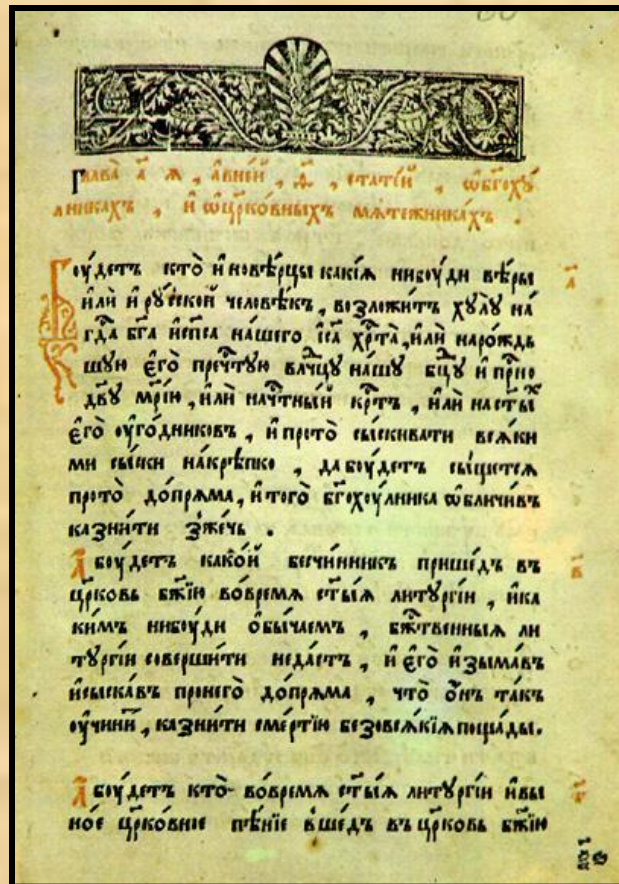 Глава̀ а҃ ѧ , а́вне́й , ѳ҃ , стате́й , ѡ́бг҃оху́
лникахъ , и҆ ѡ́цр҃ко́вныхъ мѧте́жникахъ .
Боу́детъ кто̀ и҆нове́рцы какі́ѧ нибоу́ди вѣ́ры
и҆лѝ и҆ ру́сской человѣ́къ , возложи́тъ хꙋлꙋ̀ на́
гд҃а бг҃а и҆ сп҃са нашего і҆с҃а хр҃та̀ , и҆лѝ наро́ждь
шую є҆го̀ преч҃тую влч҃цу на́шу бц҃ꙋ и҆ пр҃но
дв҃ꙋ мр҃і́ю , и҆лѝ нач҃тны́й кр҃тъ , и҆лѝ наст҃ы́х
є҆го̀ оу҆го́дниковъ , и҆ прото̀ сы́скивати всѧ́ки
ми сы́ски накрѣ́пко , да боу́детъ сы́щетсѧ
прото̀ до́прѧма , и҆ того̀ бг҃охоу́лника ѡ҆бличи́въ
казни́ти зже́чь .
А҆ боу́детъ како́й бесчи́нникъ прише́дъ въ
цр҃ковь бж҃ію во́времѧ ст҃ы́ѧ литꙋргі́и , и҆ка
ки́мъ нибоу́ди ѻ҆бы́чаемъ , бж҃твенныѧ ли
тꙋргі́и соверши́ти неда́стъ , и҆ є҆го̀ и҆зыма́въ
и҆сыска́въ пронего̀ до́прѧма , что̀ ѻ҆́нъ та́къ
оу҆чини́т , казни́ти сме́ртію безовсѧ́кіѧ поща́ды .
А҆ боу́детъ кто̀ во́времѧ ст҃ы́ѧ литꙋргі́и и҆вы
но́е цр҃ко́вное пѣ́ніе вше́дъ въ цр҃ковь бж҃ію